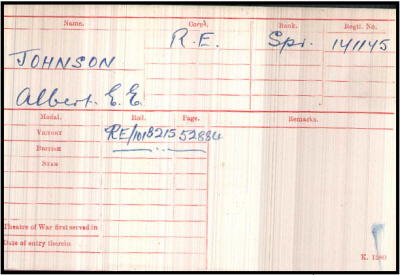 Name. Corps. Rank. Regtl. No.
R.E. Spr. 141145
JOHNSON
Albert. E. E.
Medal. Roll. Page. Remarks.
VICTORY RE/101B215 5288
BRITISH
STAR
Theatre of War first served in
Date of entry therein
K. 1380